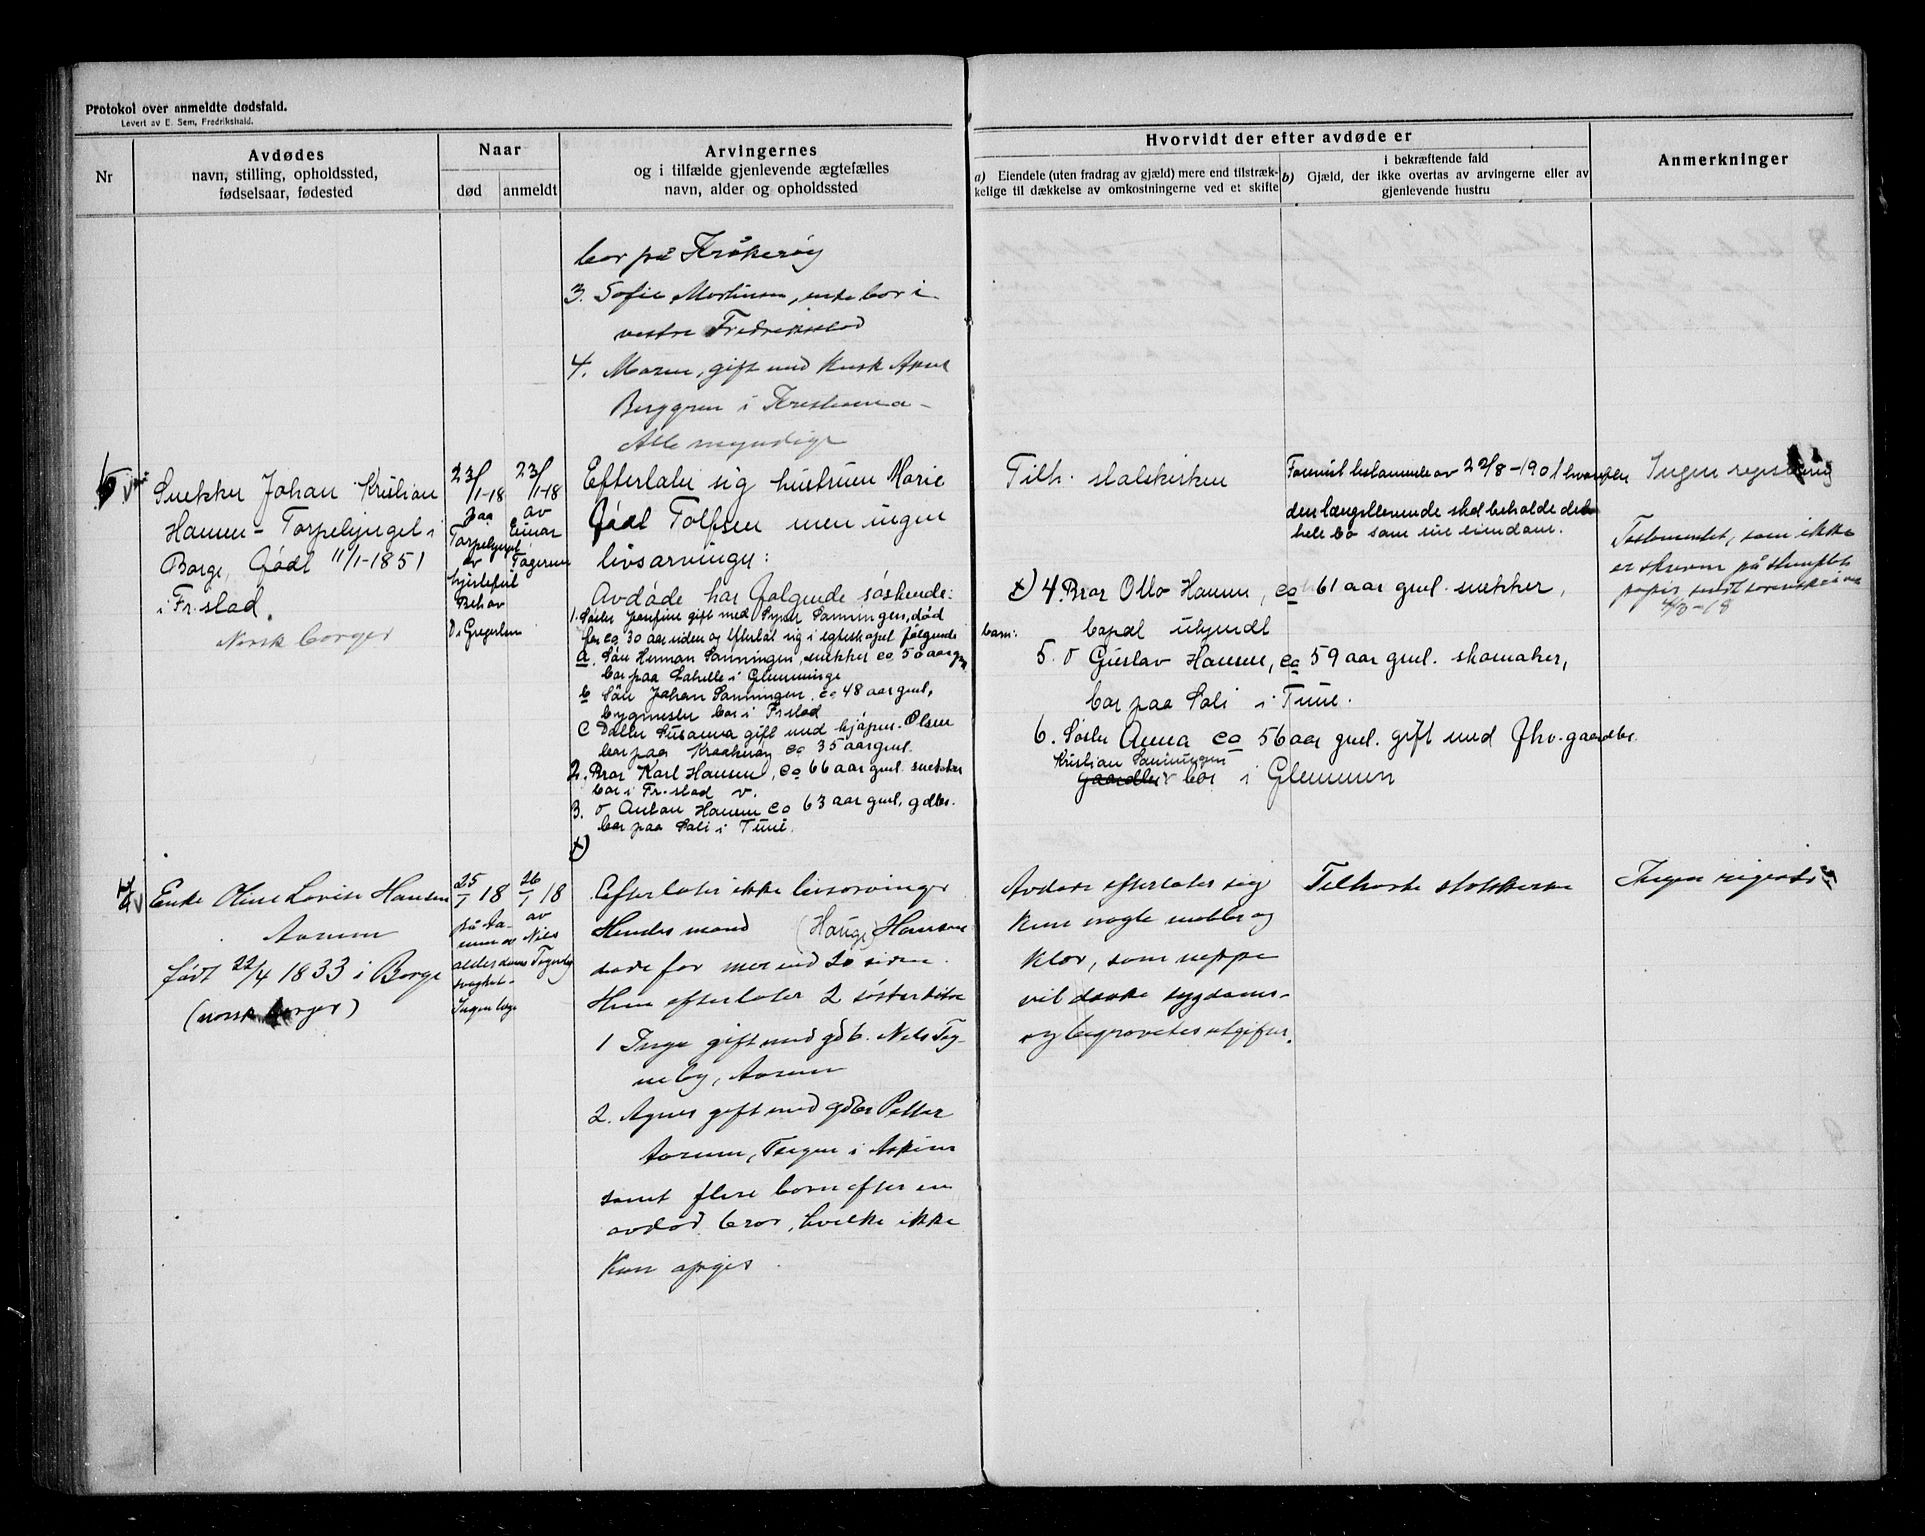 Protokol over anmeldte dødsfald.
Levert av E. Sem, Fredrikshald.
Nr
Avdødes
navn, stilling, opholdssted,
fødselsaar, fødested
Naar
død
anmeldt
Arvingernes
og i tilfælde gjenlevende ægtefælles
navn, alder og opholdssted
Hvorvidt der efter avdøde er
a) Eiendele (uten fradrag av gjæld) mere end tilstræk-
kelige til dækkelse av omkostningerne ved et skifte
i bekræftende fald
b) Gjæld, der ikke overtas av arvingerne eller av
gjenlevende hustru
Anmerkninger
bor på Kråkerøy
3. Sofie Mortinsen, enke bor i
vestre Fredriksstad
4. Maren, gift med Kusk Aksel
Berggren i Kristiania
Alle myndige
6
Snekker Johan Kristian
Hansen - Torpebjnget i
Borge, født 11/1-1851
i Fr.stad.
Norsk borger
23/1-18
paa
Torpebjnget
av
hjertefeil
Behov
D. Gregersen
23/1-18
av
Einar
Efterlater sig hustruen Marie
født Tolfsen men ingen
livsarvinger:
Avdøde har følgende søskende:
1. Søster Josefine gift med Synst Sanningen, død
for ca 30 aar siden og efterlot sig i egteskapet følgende
barn:
a. Søn Herman Sanningen, snekker ca 50 aar gl
bor paa Labelle i Glemminge
b Søn Johan Sanningen ca 48 aar gml,
bygmester bor i Fr.stad
c Datter Susanna gift med kjøpm. Olsen
bor paa Kraakerøy ca 35 aar gml.
2. Bror Karl Hansen, ca 66 aar gml snekker
bor i Fr.stad
3. o Anton Hansen ca 63 aar gml, gdbr.
bor paa Sali i Tune.
x)
Tilh. statskirken
x) 4. Bror Otto Hansen, ca 61 aar gml. snekker,
bopæl ukjendt
5. o Gustav Hansen, ca 59 aar gml. skomaker,
bor paa Sali i Tune.
6. Søster Anna ca 56 aar gml. gift med fhv. gaardbr.
Kristian Sanningen
gaardbr bor i Glemmen
testamente av 22/8-1901 hvorefter
den længstlevende skal beholde det
hele bo som sin eiendom.
Ingen registrering
Testamentet, som ikke
er skrevet på stemplet
papir, sendt sorenskriveren
4/3-18
7
Enke Oline Lovise Hansen
Aarum
født 22/4 1833 i Borge
(norsk borger)
25/1 18
på Aa-
rum av
alderdoms
svaghet-
Ingen læge
26/1 18
av
Nils
Tegneby
Efterlater ikke livsarvinger
Hendes mand (Hauge) Hansen
døde for mer end 20 siden.
Hun efterlater 2 søsterdøtre
1 Inga gift med gdb. Nils Teg-
neby, Aarum
2. Agnes gift med gdbr Petter
Aarum, Tangen i Askim
samt flere barn efter en
avdød bror, hvilke ikke
kan opgies
Avdøde efterlater sig
kun nogle møbler og
klær, som neppe
vil dække sygdoms-
og begravelsesutgifter.
Tilhørte statskirken
Ingen registr.